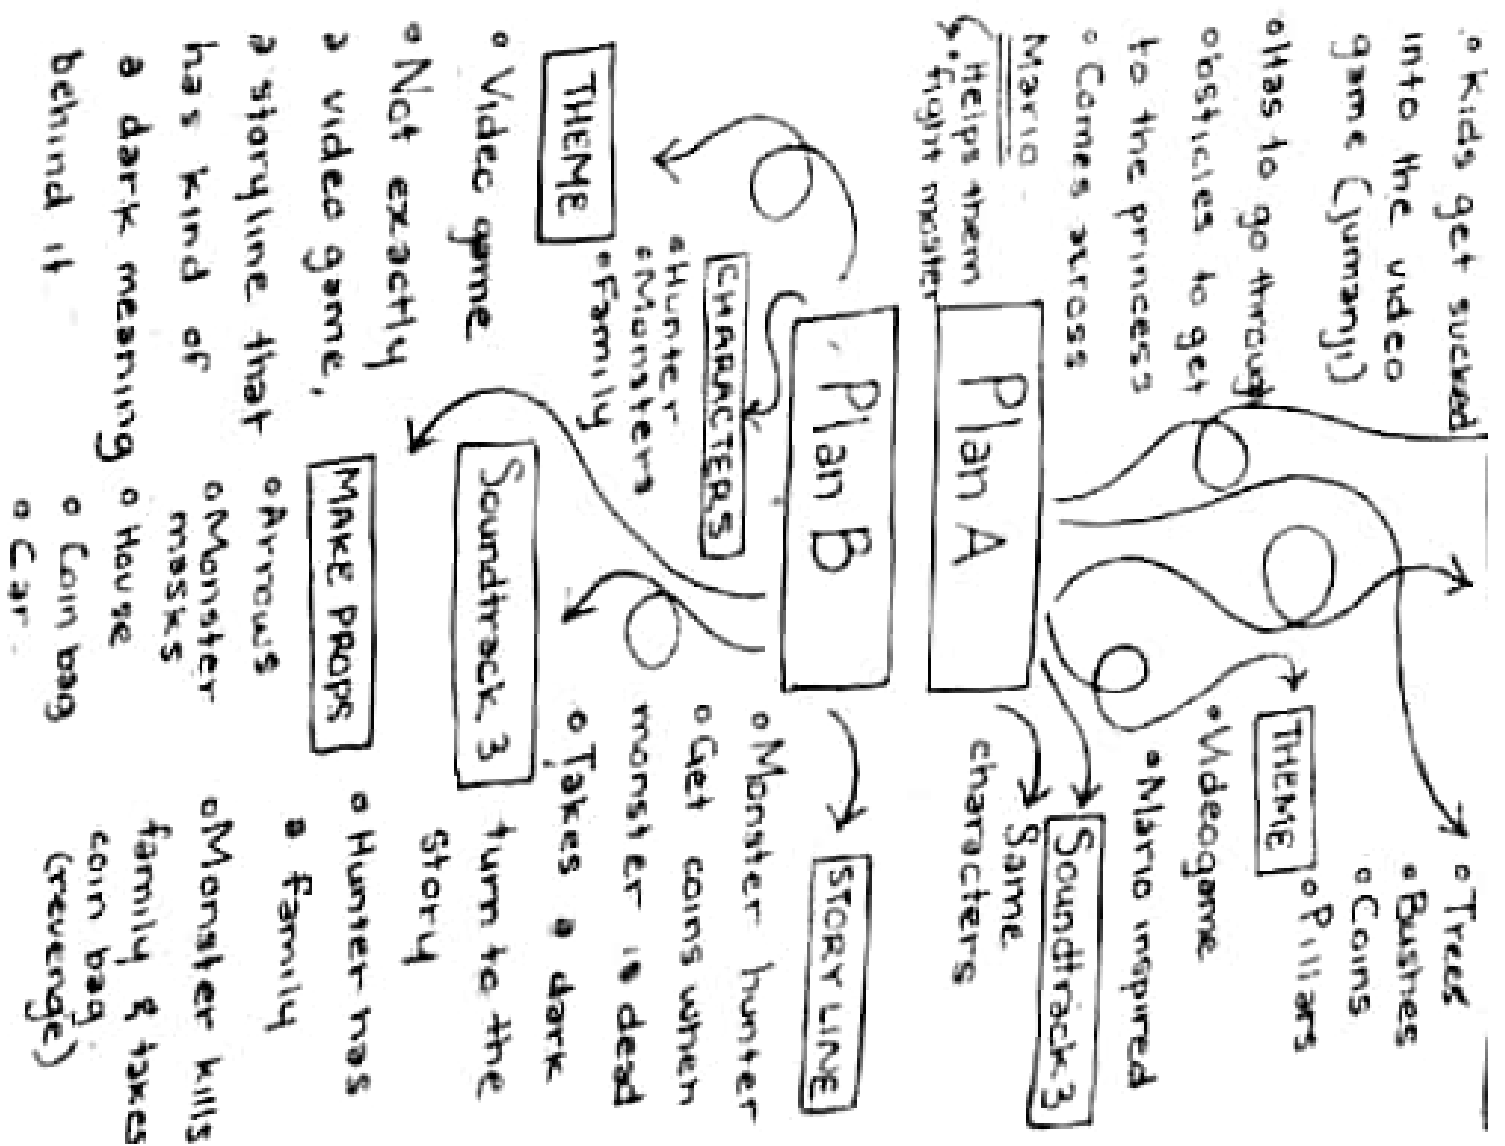 • Kids get sucked
into the video
game (jumanji)
• Has to go through
obsticles to get
to the princess
• Comes across
Mario
Helps them
& fight moster
• Trees
• Bushes
• Coins
• Pillars
THEME
• Videogame
• Mario inspired
Soundtrack 3
Same
characters
Plan A
Plan B
CHARACTERS
• Hunter
• Monsters
• Family
THEME
• Video game
• Not exactly
a video game,
a storyline that
has kind of
a dark meaning
behind it
Soundtrack 3
MAKE PROPS
• Arrows
• Monster
masks
• House
• Coin bag
• Car
STORY LINE
• Monster hunter
• Get coins when
monster is dead
• Takes a dark
turn to the
story
• Hunter has
a family
• Monster kills
family & takes
coin bag
(revenge)